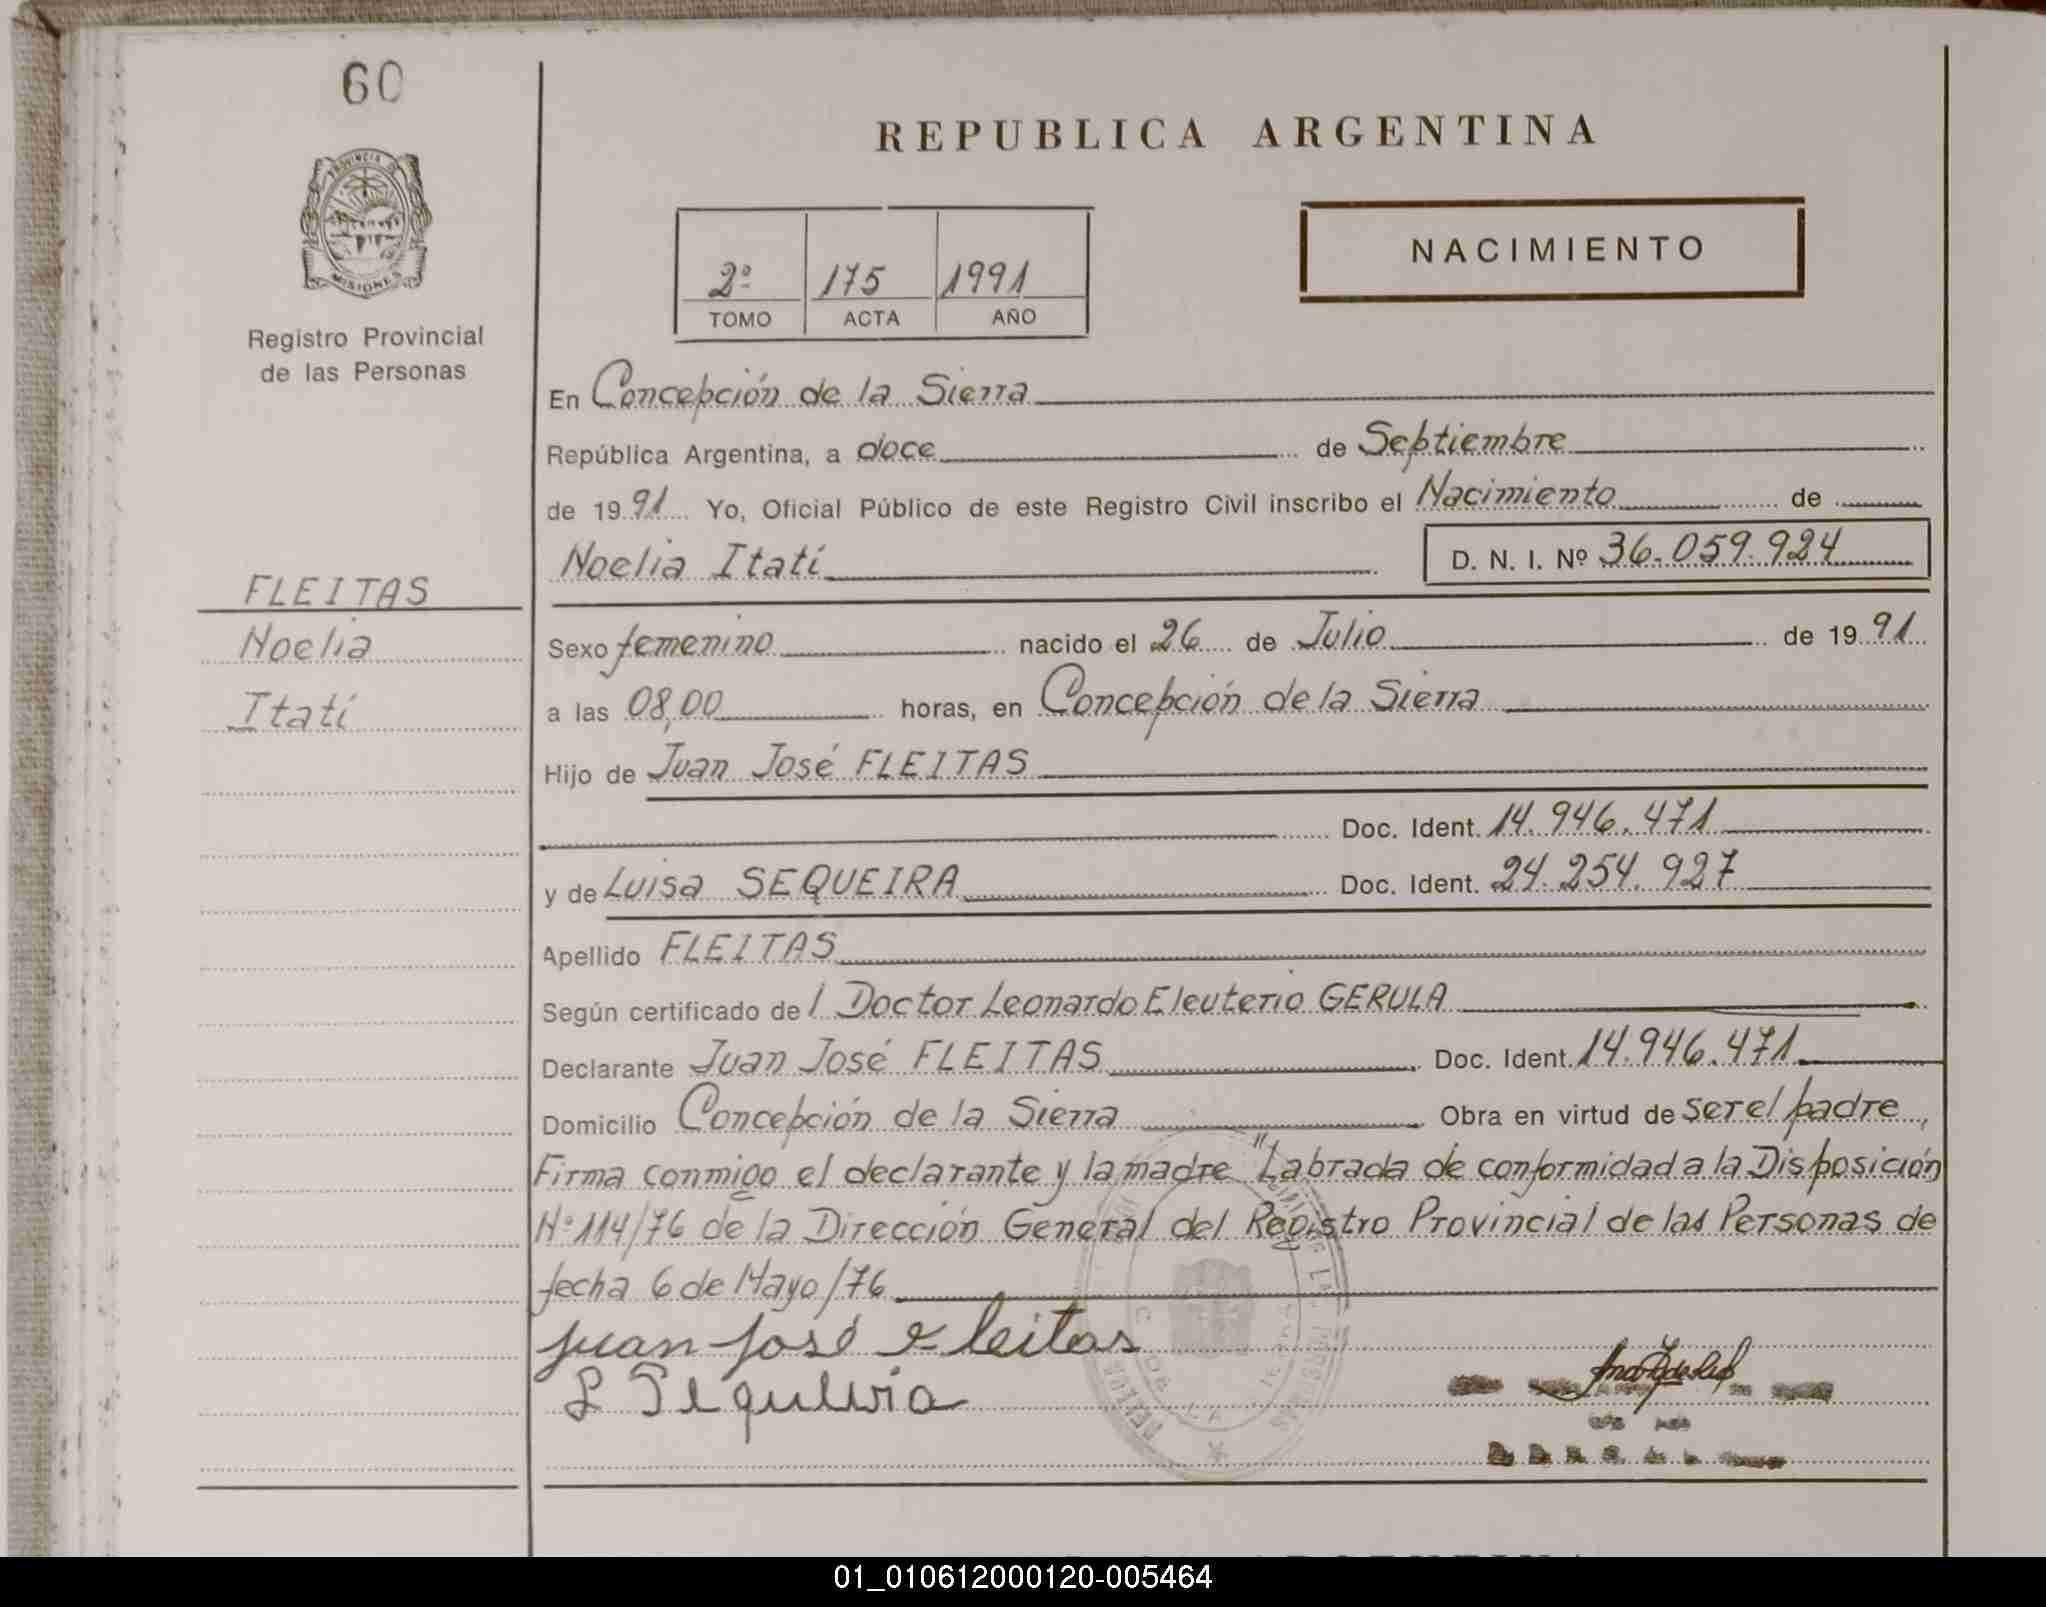 60
PROVINCIA DE
MISIONES
Registro Provincial
de las Personas
FLEITAS
Noelia
Itatí
REPUBLICA ARGENTINA
2º 175 1991
TOMO ACTA AÑO
NACIMIENTO
En Concepción de la Sierra
República Argentina, a doce de Septiembre
de 1991 Yo, Oficial Público de este Registro Civil inscribo el Nacimiento de
Noelia Itatí D. N. I. Nº 36.059.924
Sexo femenino nacido el 26 de Julio de 1991
a las 08,00 horas, en Concepción de la Sierra
Hijo de Juan José FLEITAS
Doc. Ident. 14.946.471
y de Luisa SEQUEIRA Doc. Ident. 24.254.927
Apellido FLEITAS
Según certificado del Doctor Leonardo Eleuterio GERULA
Declarante Juan José FLEITAS Doc. Ident. 14.946.471
Domicilio Concepción de la Sierra Obra en virtud de ser el padre,
Firma conmigo el declarante y la madre "Labrada de conformidad a la Disposición
Nº 114/76 de la Dirección General del Registro Provincial de las Personas de
fecha 6 de Mayo/76
juan josé fleitas
L Sequeira
01_010612000120-005464